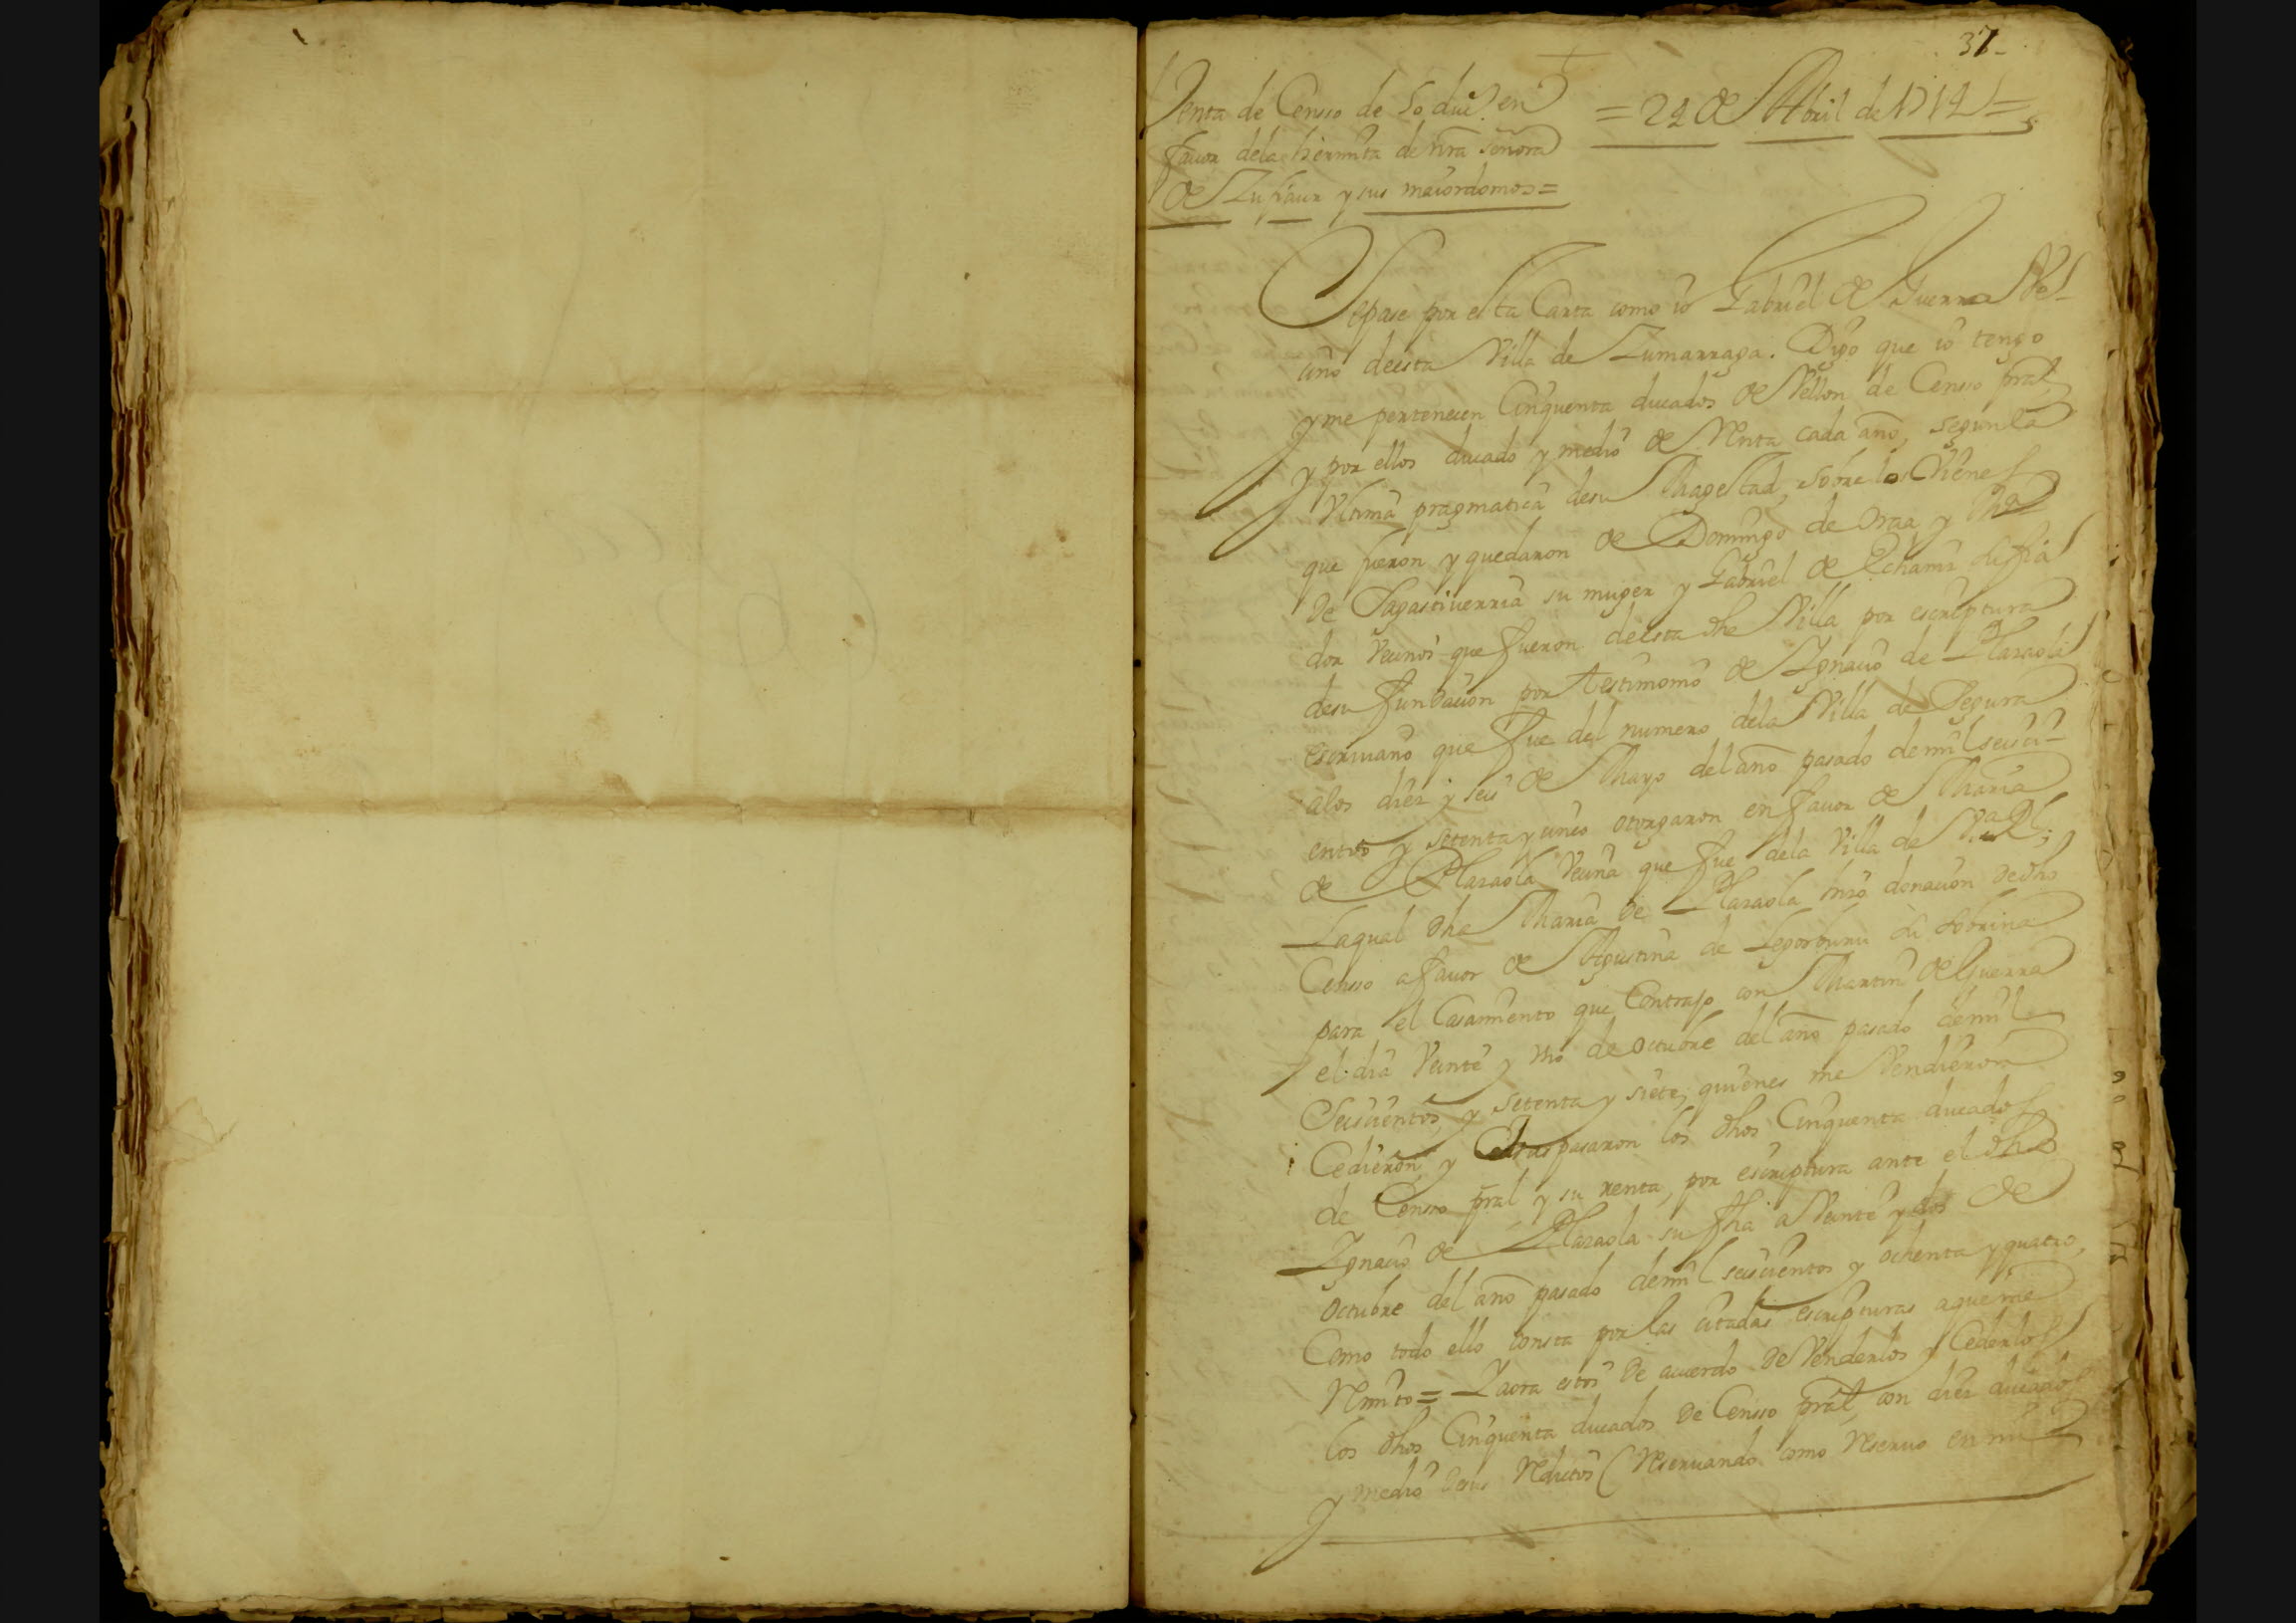 37
Venta de Censso de 50 due.s en
favor dela hermita de nra señora
de Zufiaur y sus maiordomos =
= 24 de Abril de 1714 =
Sepase por esta Carta como io Gabriel de Guerra Ve-
cino deesta Villa de Zumarraga. Digo que io tengo
y me pertenecen Cinquenta ducados de Vellon de Censso pral
y por ellos ducado y medio de Renta cada año, segun la
Vltima pragmatica desu Magestad, sobre los Vienes
que fueron y quedaron de Domingo de Oraa y Ma
de Sagastiverria su muger y Gabriel de Echaniz su fia
dor Vecinos que fueron deesta dha Villa por escriptura
desu fundacion por testimonio de Ygnacio de Plazaola
escriuano que fue del numero dela Villa de Segura
alos diez y seis de Mayo del año pasado de mil seisci-
entos y setenta y cinco otorgaron en fauor de Maria
de Plazaola Vecina que fue dela Villa de
La qual dha Maria de Plazaola hizo donacion de dho
Censso afauor de Agustina de Legorburu su sobrina
para el Casamiento que Contrajo con Martin de Guerra
el dia Veinte y tres de octubre del año pasado de mil
Seiscientos y setenta y siete, quienes me Vendieron
Cedieron y traspasaron los dhos Cinquenta ducados
de Censso pral y su renta, por escriptura ante el dho
Ygnacio de Plazaola su fha a Veinte y dos de
octubre del año pasado de mil seiscientos y ochenta y quatro,
Como todo ello consta por las citadas escripturas aque me
Remito = Y aora estoi de acuerdo de Venderlos y Cederlos
los dhos Cinquenta ducados de Censso pral con diez ducados
y medio desus Reditos (Reseruando como Reseruo en mi